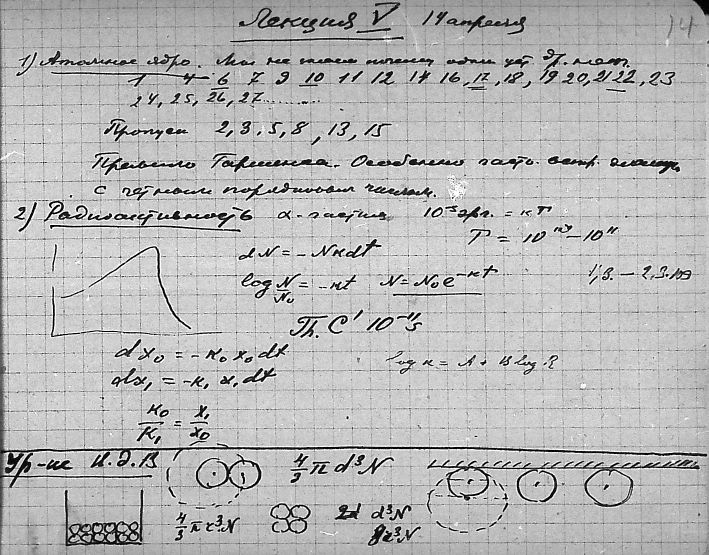 Лекция V 14 апреля 14
1) Атомное ядро. Мы не знаем почему одни уст. др. нет.
1 4 6 7 9 10 11 12 14 16, 17, 18, 19 20, 21 22, 23
24, 25, 26, 27........
Пропуски 2, 3, 5, 8, 13, 15
Правило Гаркинса. Особенно часто встр.
с четным порядковым числом.
2) Радиоактивность α-частиц 10⁻⁵ эрг. = kT
T = 10 – 10
dN = -Nκdt
log N/N₀ = -κt N = N₀e^-κt
Th. C' 10⁻¹¹ s
dx₀ = -κ₀ x₀ dt
log κ = A + B log R
dx₁ = -κ₁ x₁ dt
κ₀/κ₁ = x₁/x₀
Ур-ие И.д.В
4/3 π d³N
4/3 π r³N 2d d³N
8r³N